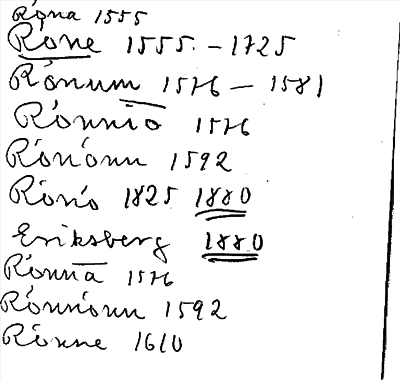 Róna 1555
Róne 1555 - 1725
Rónum 1576 - 1581
Rónnió 1576
Rónónn 1592
Rónó 1825 1880
Eriksberg 1880
Rónna 1576
Rónnónn 1592
Rónne 1610